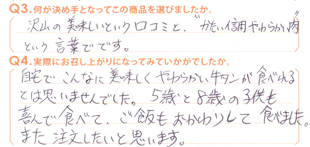 Q3.何が決め手となってこの商品を選びましたか。
沢山の美味しいという口コミと、"かたい信州やわらかい肉"
という言葉でです。
Q4.実際にお召し上がりになってみていかがでしたか。
自宅でこんなに美味しくやわらかい牛タンが食べれる
とは思いませんでした。5歳と8歳の子供も
喜んで食べて、ご飯もおかわりして食べました。
また注文したいと思います。